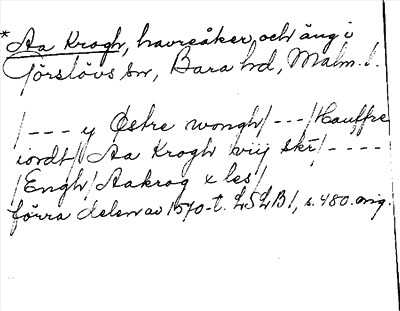 * Aa Krogh, havreåker och äng i
Görslövs sn, Bara hd, Malm. l.
/ - - - y Østre wongh / - - - / Hauffre
iordt / Aa Krogh viij skr / - - - -
/ Engh / Aakrog x les /
förra delen av 1570-t. LSLB 1, s. 480. orig.